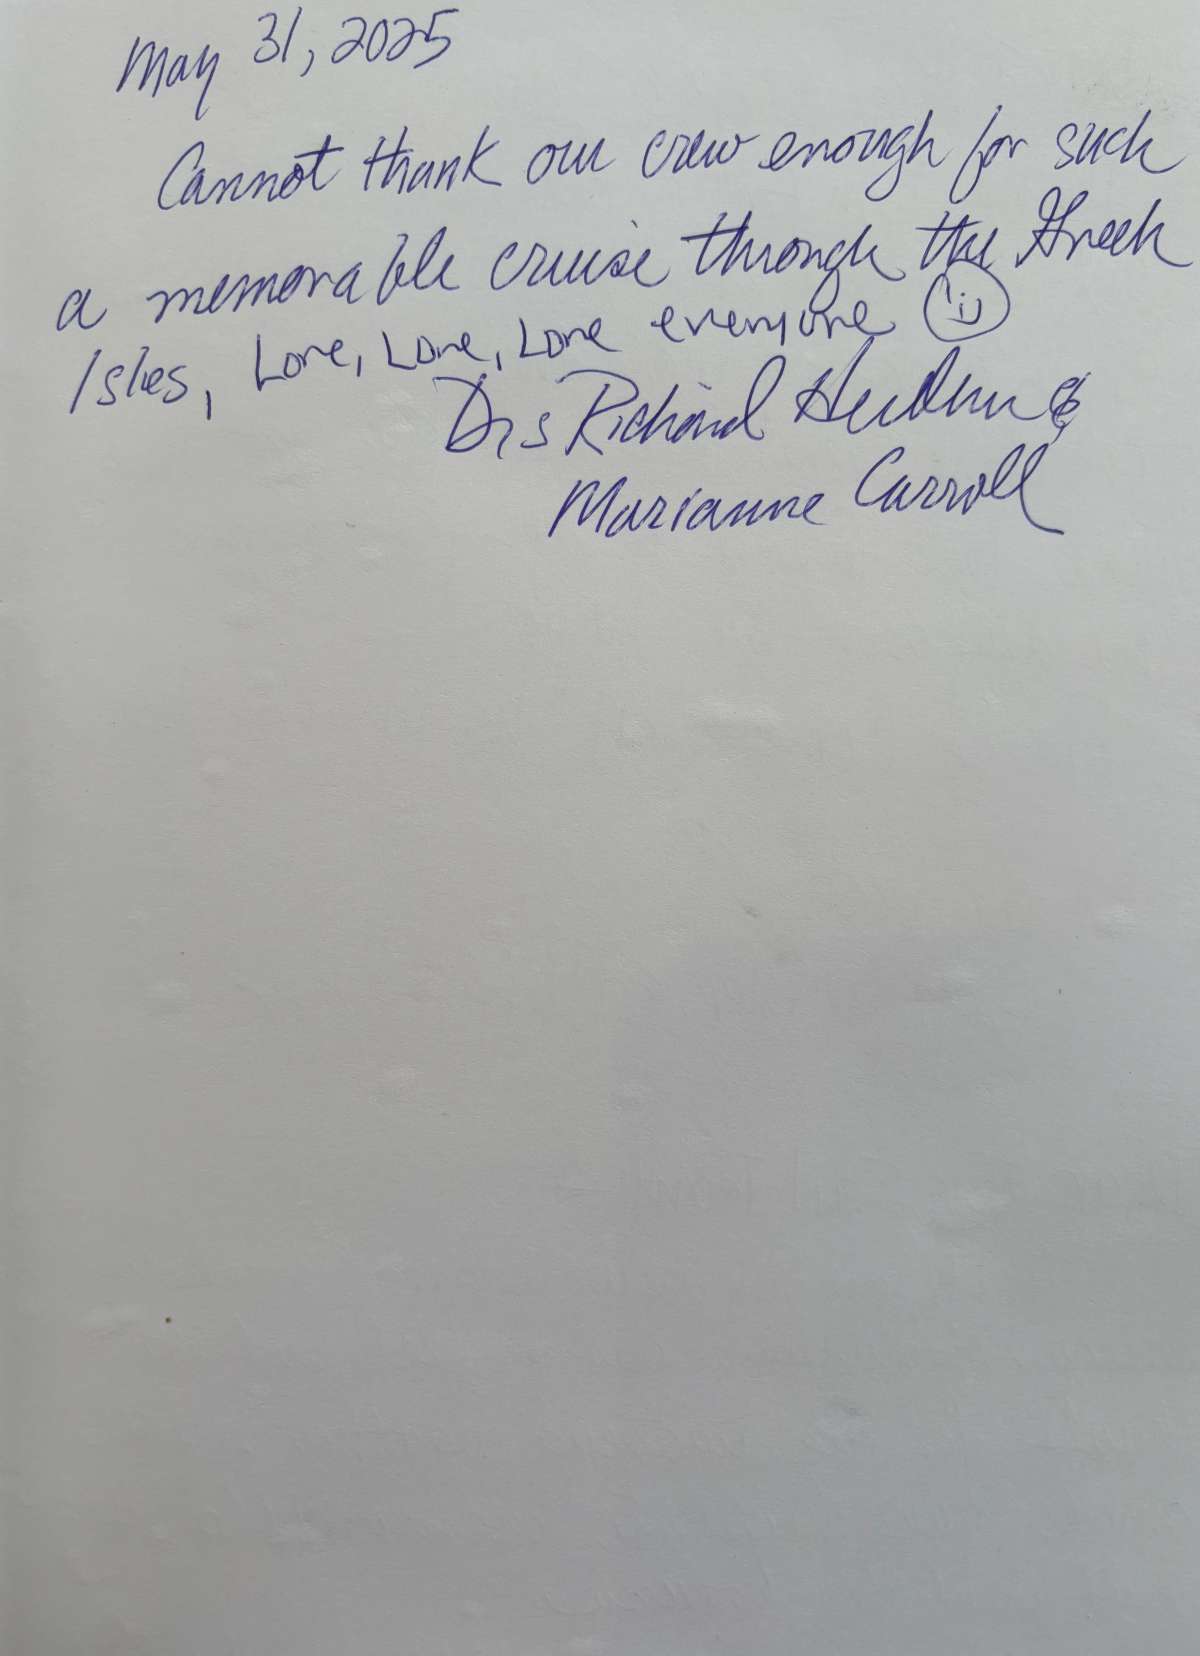 May 31, 2025
Cannot thank our crew enough for such
a memorable cruise through the Greek
Isles, Love, Love, Love everyone
Drs Richard &
Marianne Carroll